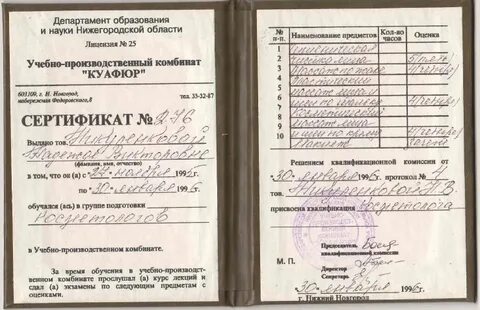 Департамент образования
и науки Нижегородской области
Лицензия № 25
Учебно-производственный комбинат
"КУАФЮР"
603109, г. Н. Новгород, тел. 33-32-87
набережная Федоровского, 8
СЕРТИФИКАТ № 276
Выдано тов. Никуренковой
Надежде Викторовне
(фамилия, имя, отчество)
в том, что он (а) с 27 ноября 1995 г.
по 30 января 1996 г.
обучался (ась) в группе подготовки
косметологов
в Учебно-производственном комбинате.
За время обучения в учебно-производст-
венном комбинате прослушал (а) курс лекций и сдал
(а) экзамены по следующим предметам с
оценками.
№ п-п. Наименование предметов Кол-во часов Оценка
1 Гигиеническая
2 чистка лица 5 (пять)
3 Массаж по коже 4 (четыре)
4 Пластический
5 массаж лица
6 и шеи по тальку 4 (четыре)
7 Косметический
8 массаж лица
9 и шеи по крему 4 (четыре)
10 Макияж зачёт
Решением квалификационной комиссии от
30 января 1996 г. протокол № 4
тов. Никуренковой Н.В.
присвоена квалификация косметолога
Председатель
квалификационной комиссии
М. П.
Директор
Секретарь
30 января 1996 г.
г. Нижний Новгород